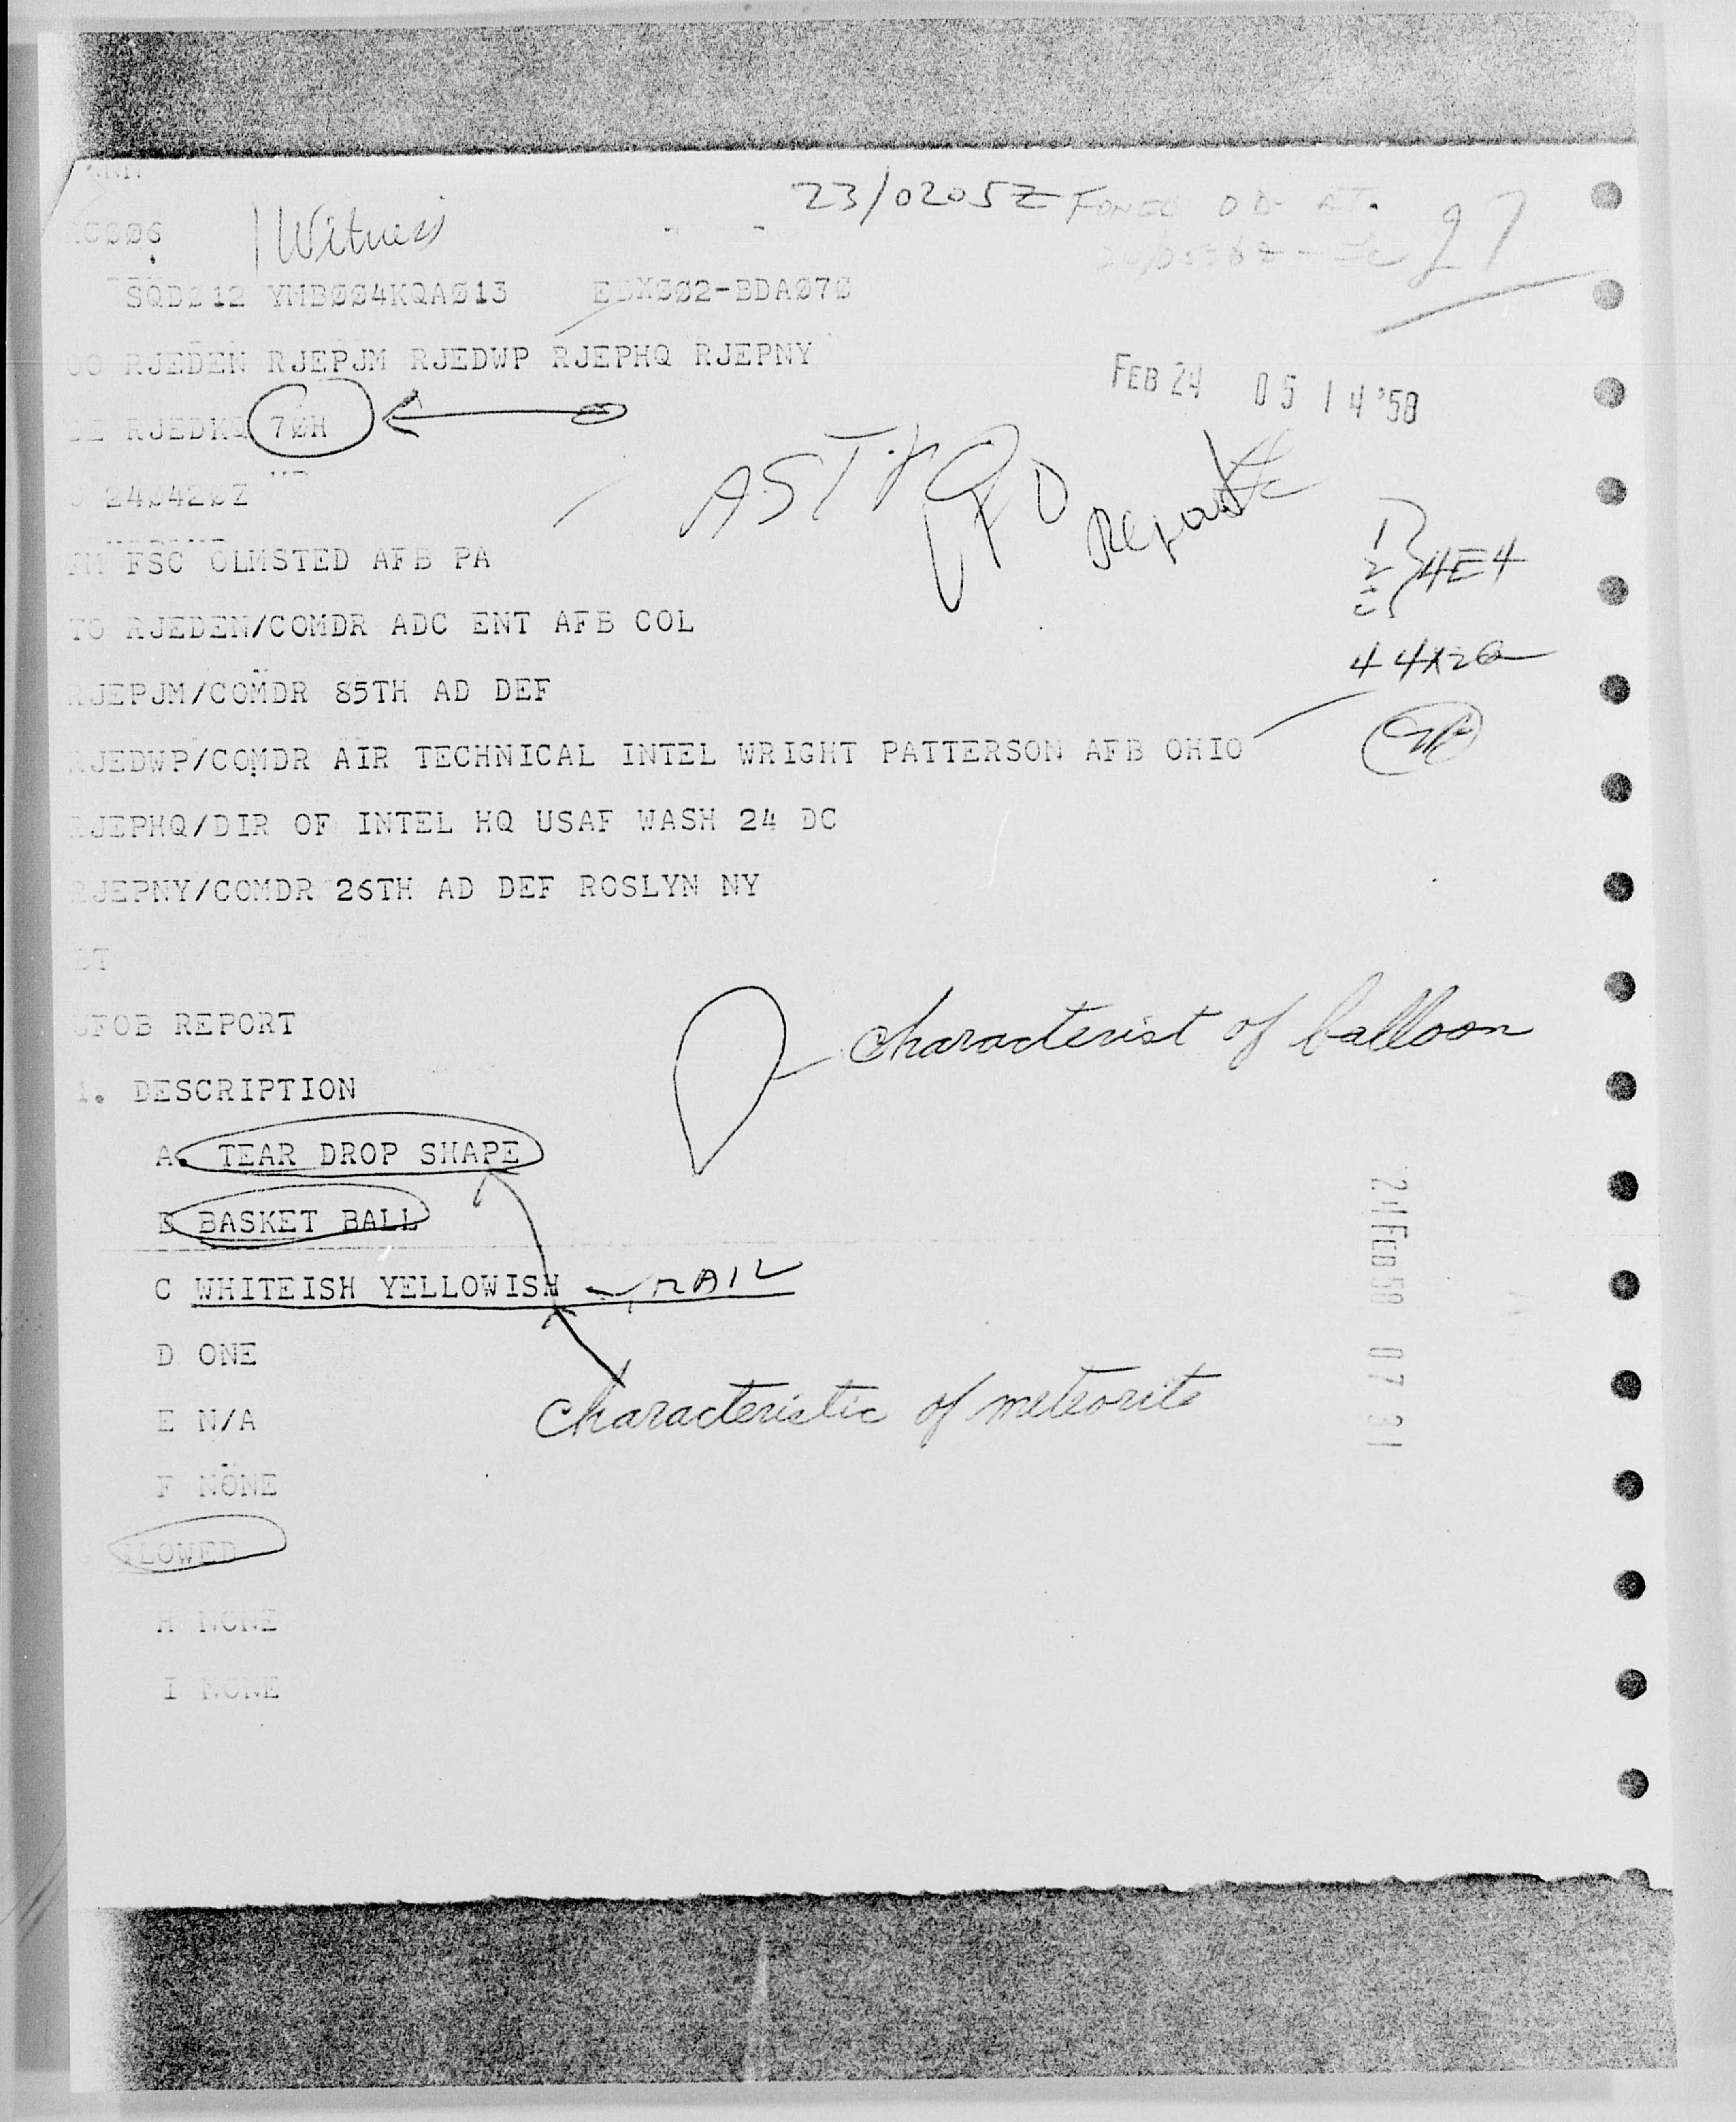 23/0205Z FONED OD AT.
1 Witness
27
SQD012 YMB004KQA013 EDX002-BDA070
OO RJEDEN RJEPJM RJEDWP RJEPHQ RJEPNY
FEB 24 05 14 '58
DE RJEDKQ 70H
ASTRO
UFO Report
O 240420Z
1
2
3
4E4
FM FSC OLMSTED AFB PA
TO RJEDEN/COMDR ADC ENT AFB COL
4 4X2a
RJEPJM/COMDR 85TH AD DEF
RJEDWP/COMDR AIR TECHNICAL INTEL WRIGHT PATTERSON AFB OHIO
RJEPHQ/DIR OF INTEL HQ USAF WASH 24 DC
RJEPNY/COMDR 26TH AD DEF ROSLYN NY
BT
UFOB REPORT
characterist of balloon
1. DESCRIPTION
A. TEAR DROP SHAPE
B BASKET BALL
C WHITEISH YELLOWISH - TRAIL
D ONE
E N/A
characteristic of meteorite
24 FEB 58 07 31
F NONE
GLOWED
H NONE
I NONE